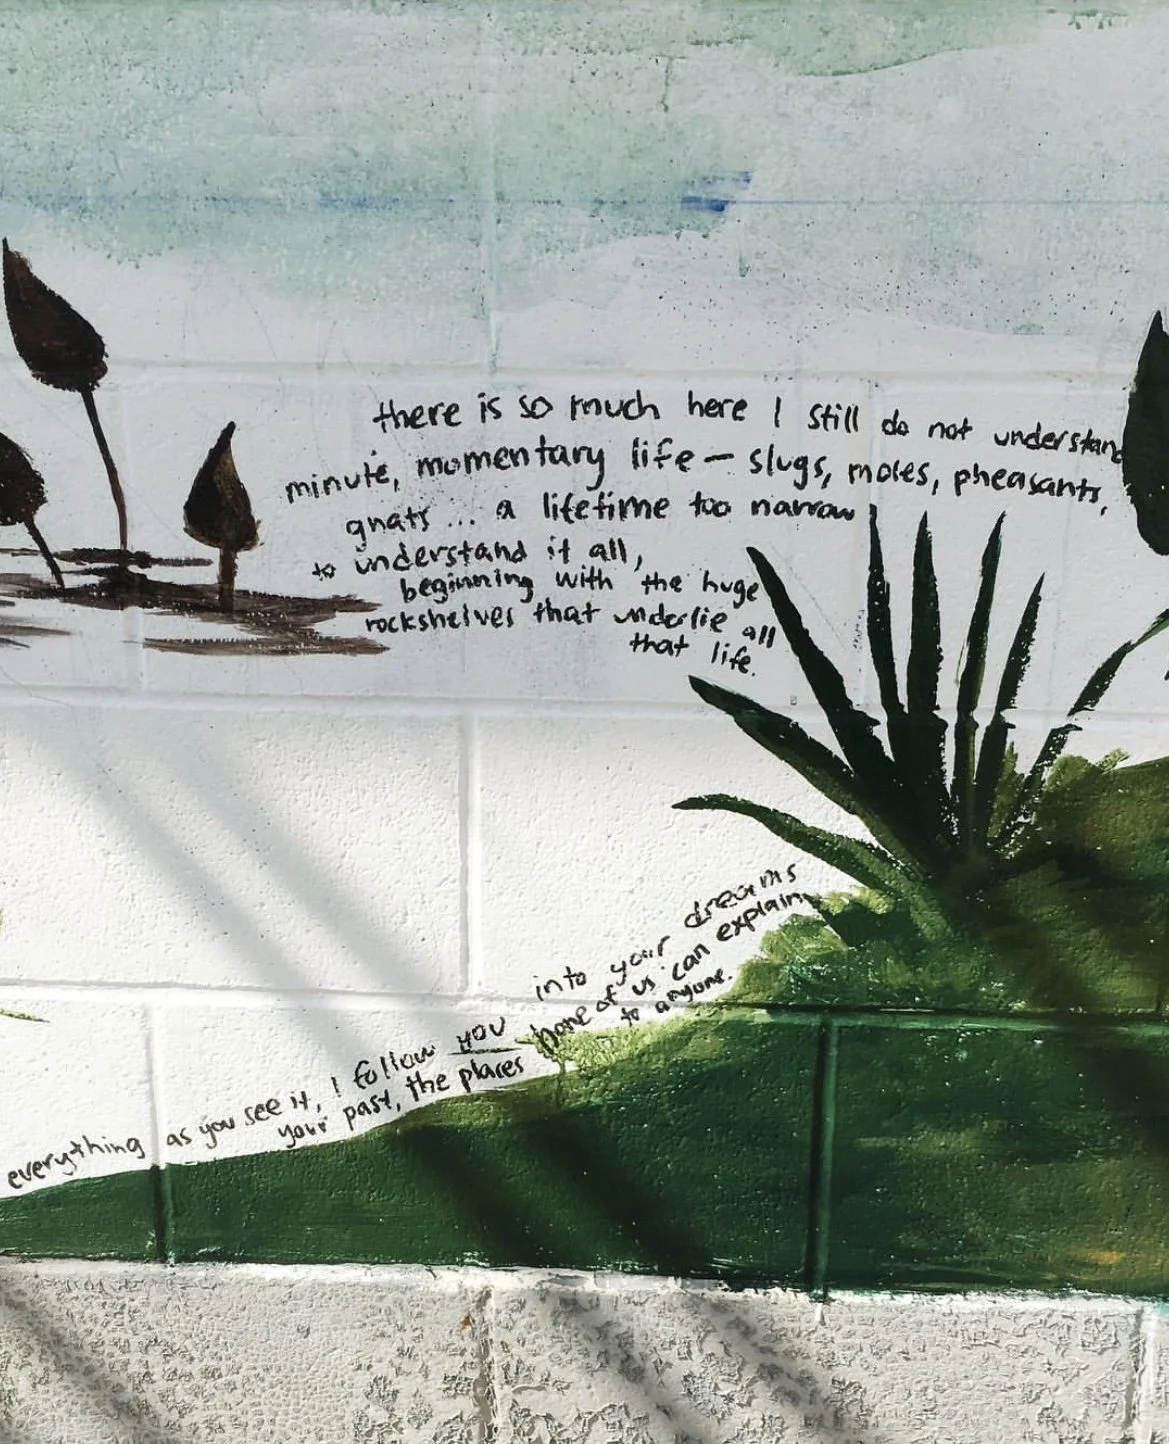 there is so much here I still do not understand
minute, momentary life – slugs, moles, pheasants,
gnats ... a lifetime too narrow
to understand it all,
beginning with the huge
rockshelves that underlie all
that life.
everything as you see it, I follow you into your dreams
your past, the places none of us can explain
to anyone.